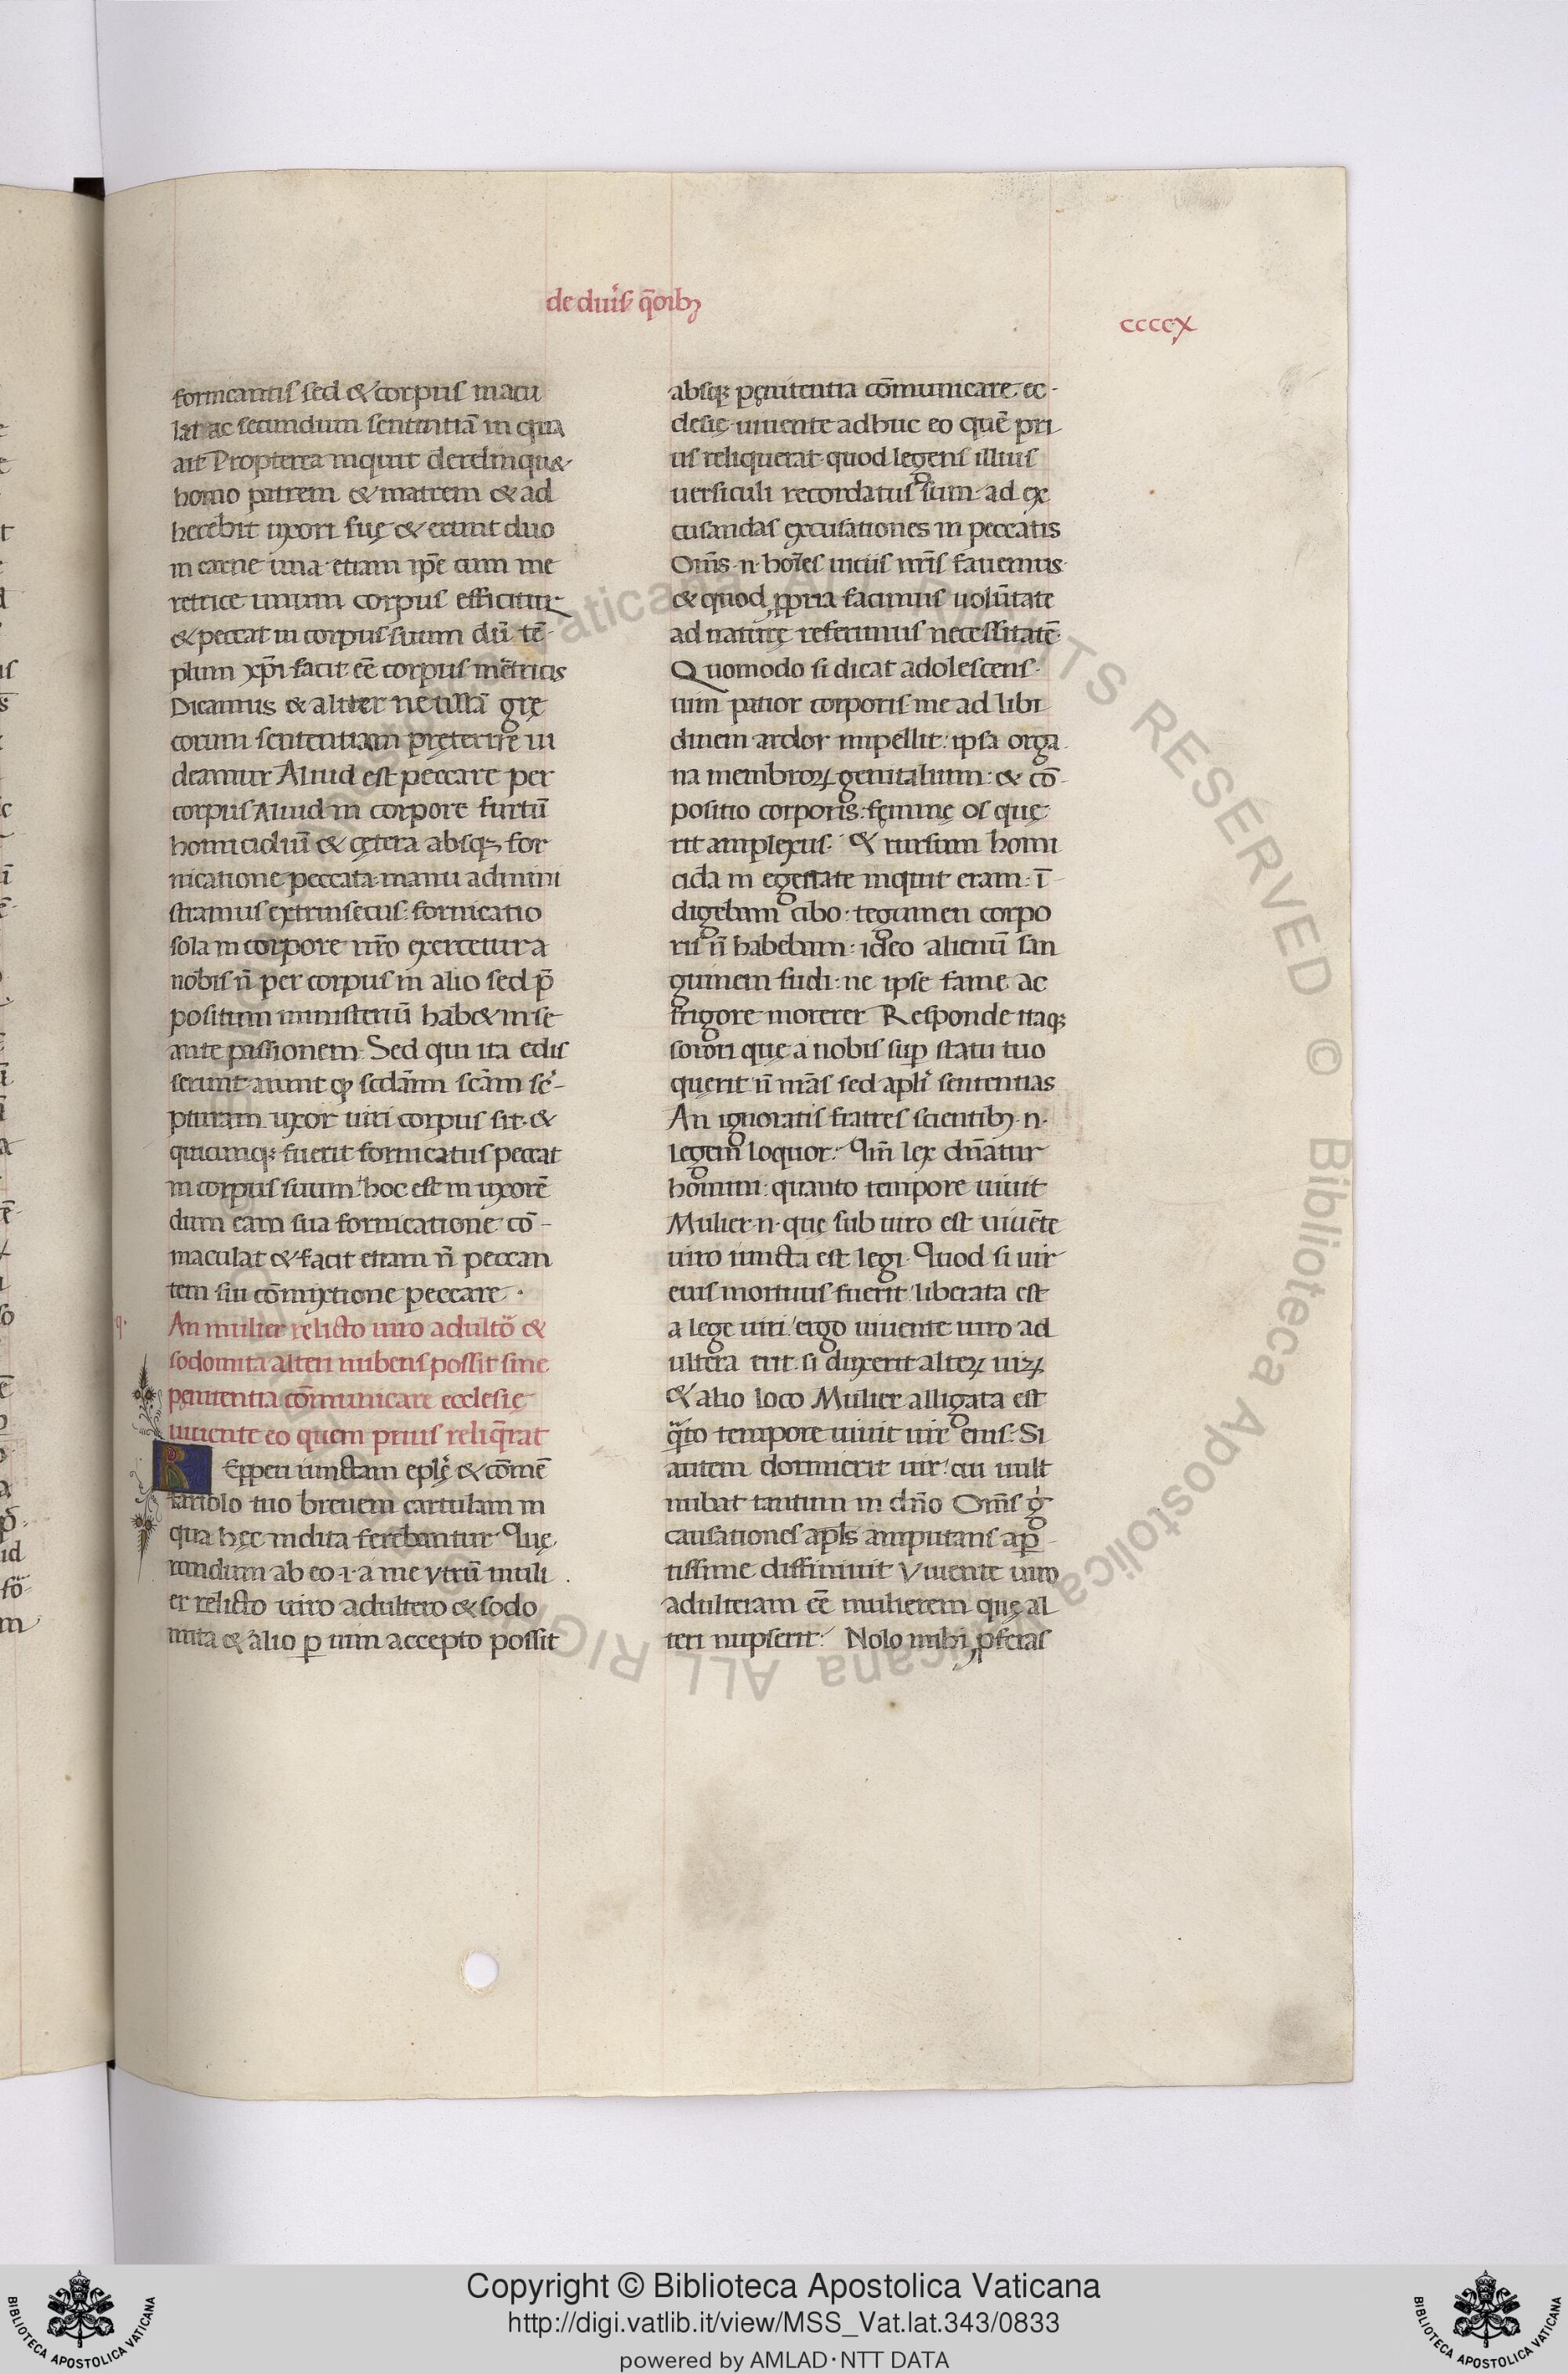 de diuis q̄oib;
ccccx
fornicantis sed & corpus macu
lat ac secundum sententiā in qua
ait Propterea inquit derelinqu&
homo patrem & matrem & ad
herebit uxori suę & erunt duo
in carne una etiam ip̄e cum me
retrice unum corpus efficitur
& peccat in corpus suum dū tē
plum xp̄i facit eē corpus mētricis
Dicamus & aliter ne ullā grę
corum sententiam pręterire ui
deamur Aliud est peccare per
corpus Aliud in corpore furtū
homicidiū & cętera absq; for
nicatione peccata manu admini
stramus extrinsecus: fornicatio
sola in corpore nr̄o exercetur a
nobis n̄ per corpus in alio sed p̄
positum ministeriū hab& in se
ante passionem. Sed qui ita edis
serunt aiunt qꝫ scd̄am sc̄am sc̄-
pturam uxor uiri corpus sit. &
quicunq; fuerit fornicatus peccat
in corpus suum. hoc est in uxorē
dum eam sua fornicatione cō-
maculat & facit etiam n̄ peccan
tem sui cōmixtione peccare.
An mulier relicto uiro adult̄o &
sodomita alteri nubens possit sine
pęnitentia cōmunicare ecclesię
uiuente eo quem prius reliq̄rat
REpperi iunctam epl̄ę & cōmē
tariolo tuo breuem cartulam in
qua hęc indita ferebantur Quę
rendum ab eo .i. a me vtrū muli
er relicto uiro adultero & sodo
mita & alio p uim accepto possit
absq; pęnitentia cōmunicare ec-
clesię uiuente adhuc eo quē pri
us reliquerat quod legens illius
uersiculi recordatus sum. ad ex
cusandas excusationes in peccatis
Om̄s .n. hoīes uiciis nr̄is fauemus
& quod ꝓpria facimus uolūtate
ad naturę referimus necessitatē
Quomodo si dicat adolescens.
uim patior corporis. me ad libi
dinem ardor impellit: ipsa orga
na membroꝝ genitalium: & cō-
positio corporis: fęminę os quę
rit amplexus. & rursum homi
cida in egestate inquit eram: ī-
digebam cibo: tegumen corpo
ris n̄ habebam: ideo alienū san
guinem fudi: ne ipse fame ac
frigore morerer Responde itaq;
sorori que a nobis sup statu suo
querit n̄ nr̄as sed apl̄i sententias
An ignoratis fratres scientib; .n.
legem loquor: Qm̄ lex dn̄atur
homini: quanto tempore uiuit
Mulier .n. quę sub uiro est uiuēte
uiro iuncta est legi. Quod si uir
eius mortuus fuerit liberata est
a lege uiri. ergo uiuente uiro ad
ultera erit si duxerit alteꝝ uiꝝ
& alio loco Mulier alligata est
q̄to tempore uiuit uir eius. Si
autem dormierit uir. cui uult
nubat tantum in dn̄o Om̄s g̊
causationes apl̄s amputans ap-
tissime diffiniuit Viuente uiro
adulteram eē mulierem quę al
teri nupserit. Nolo mihi ꝓferas
Copyright © Biblioteca Apostolica Vaticana
http://digi.vatlib.it/view/MSS_Vat.lat.343/0833
powered by AMLAD·NTT DATA